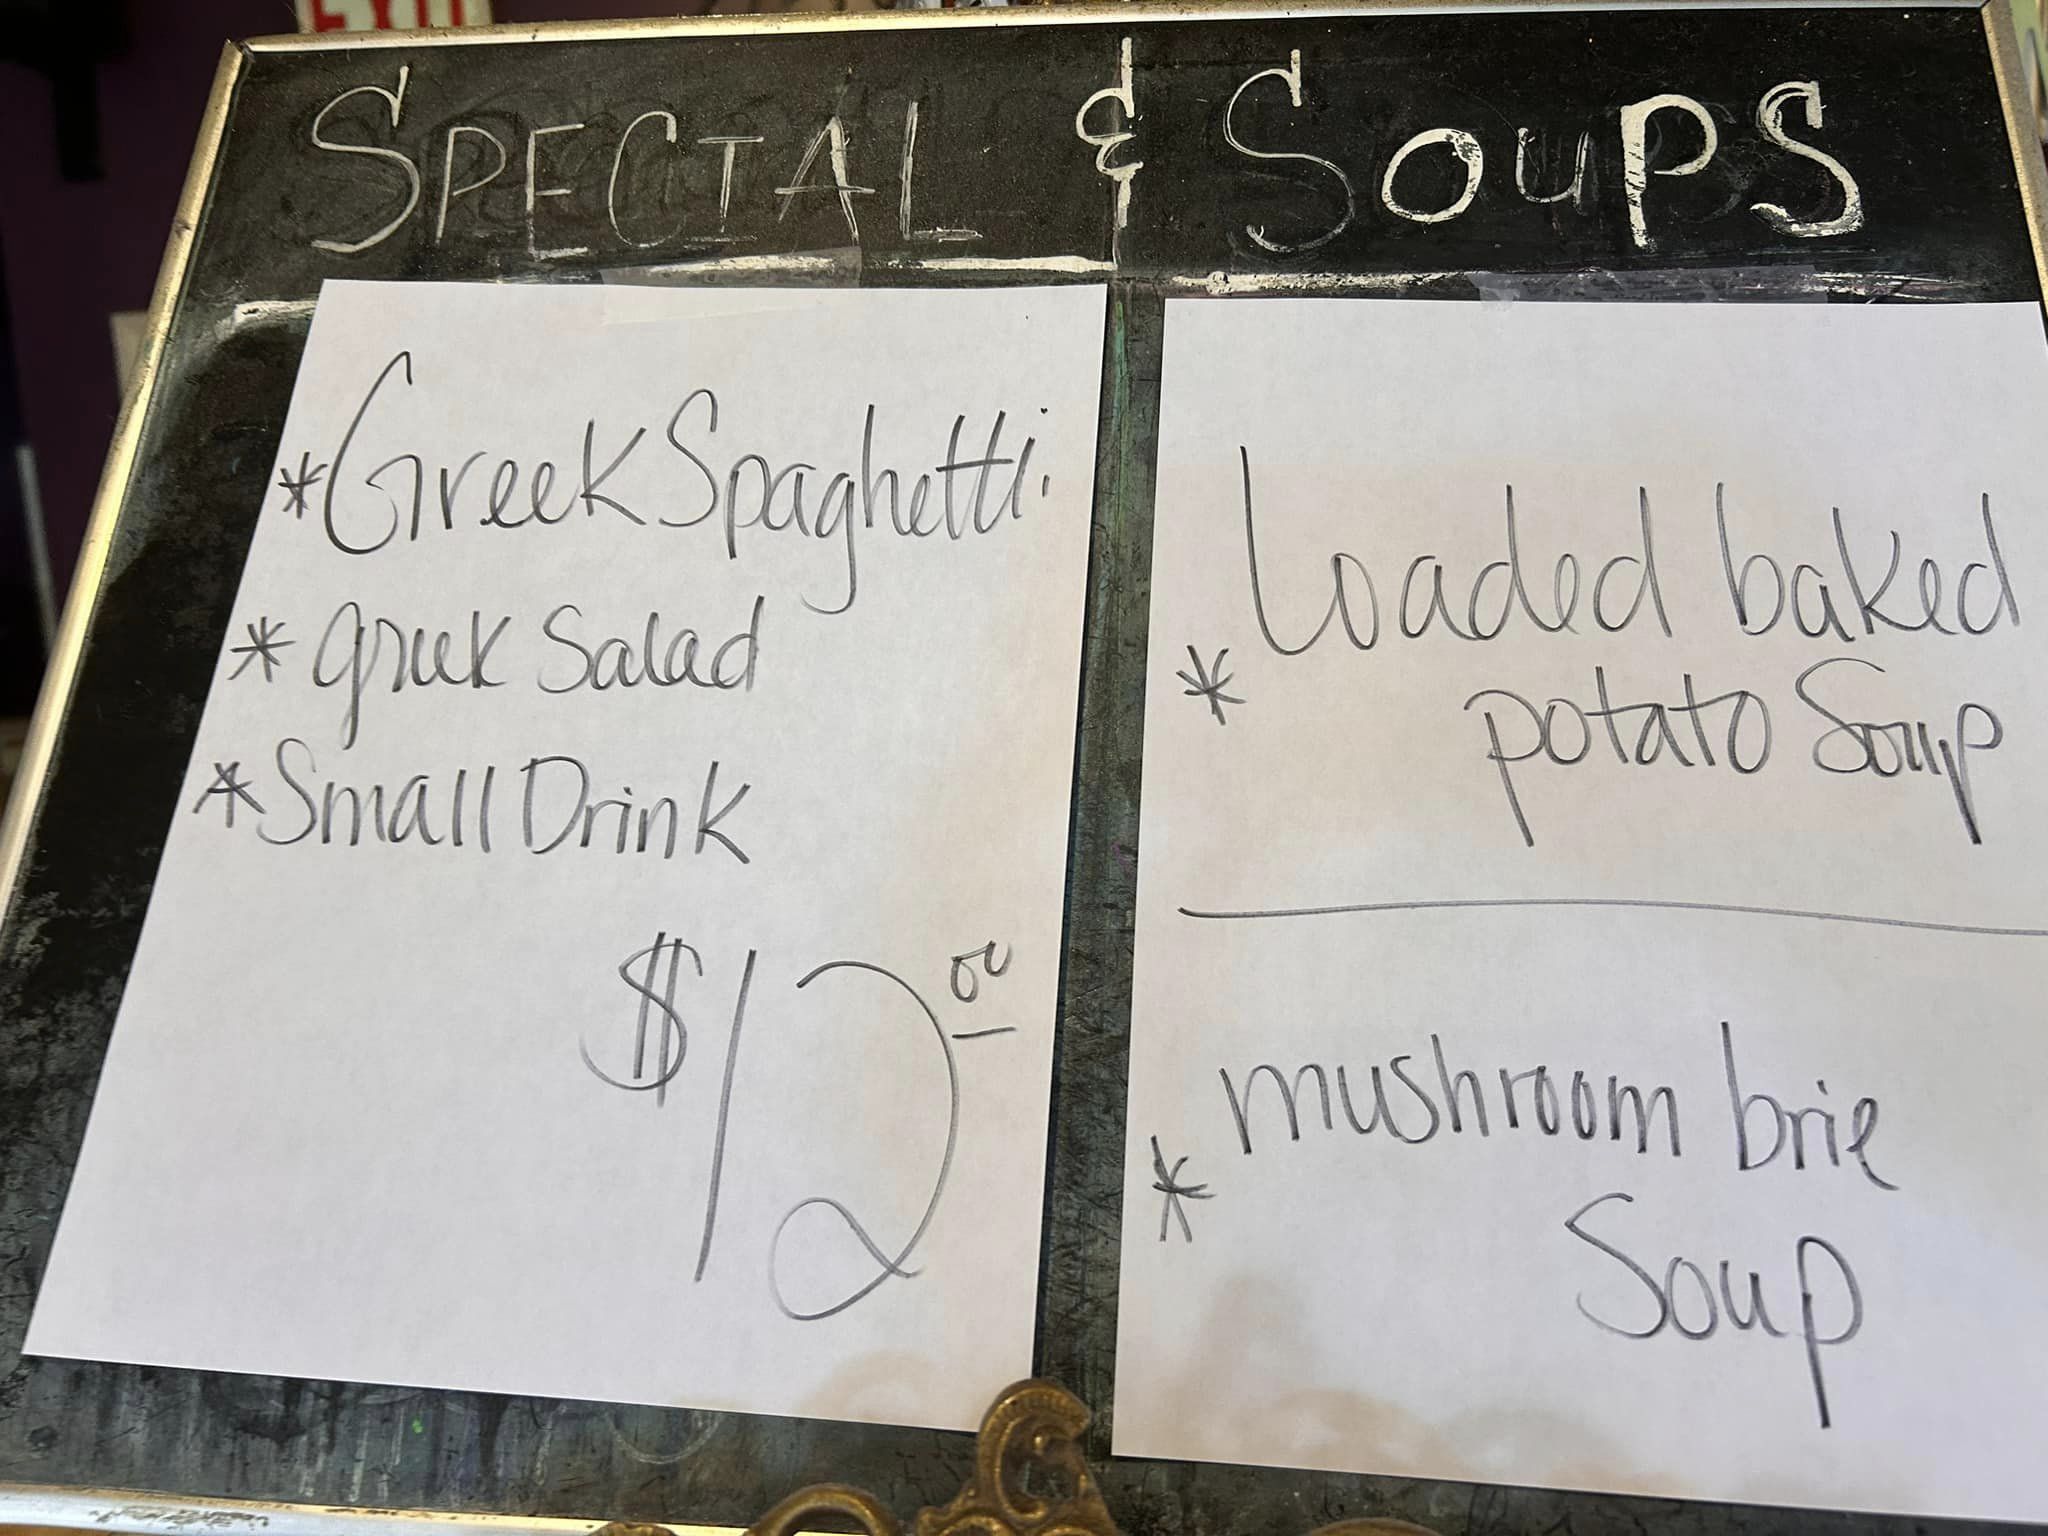 SPECIAL & SOUPS
*Greek Spaghetti.
* greek Salad
*Small Drink
$12.00
* Loaded baked
potato Soup
* mushroom brie
Soup